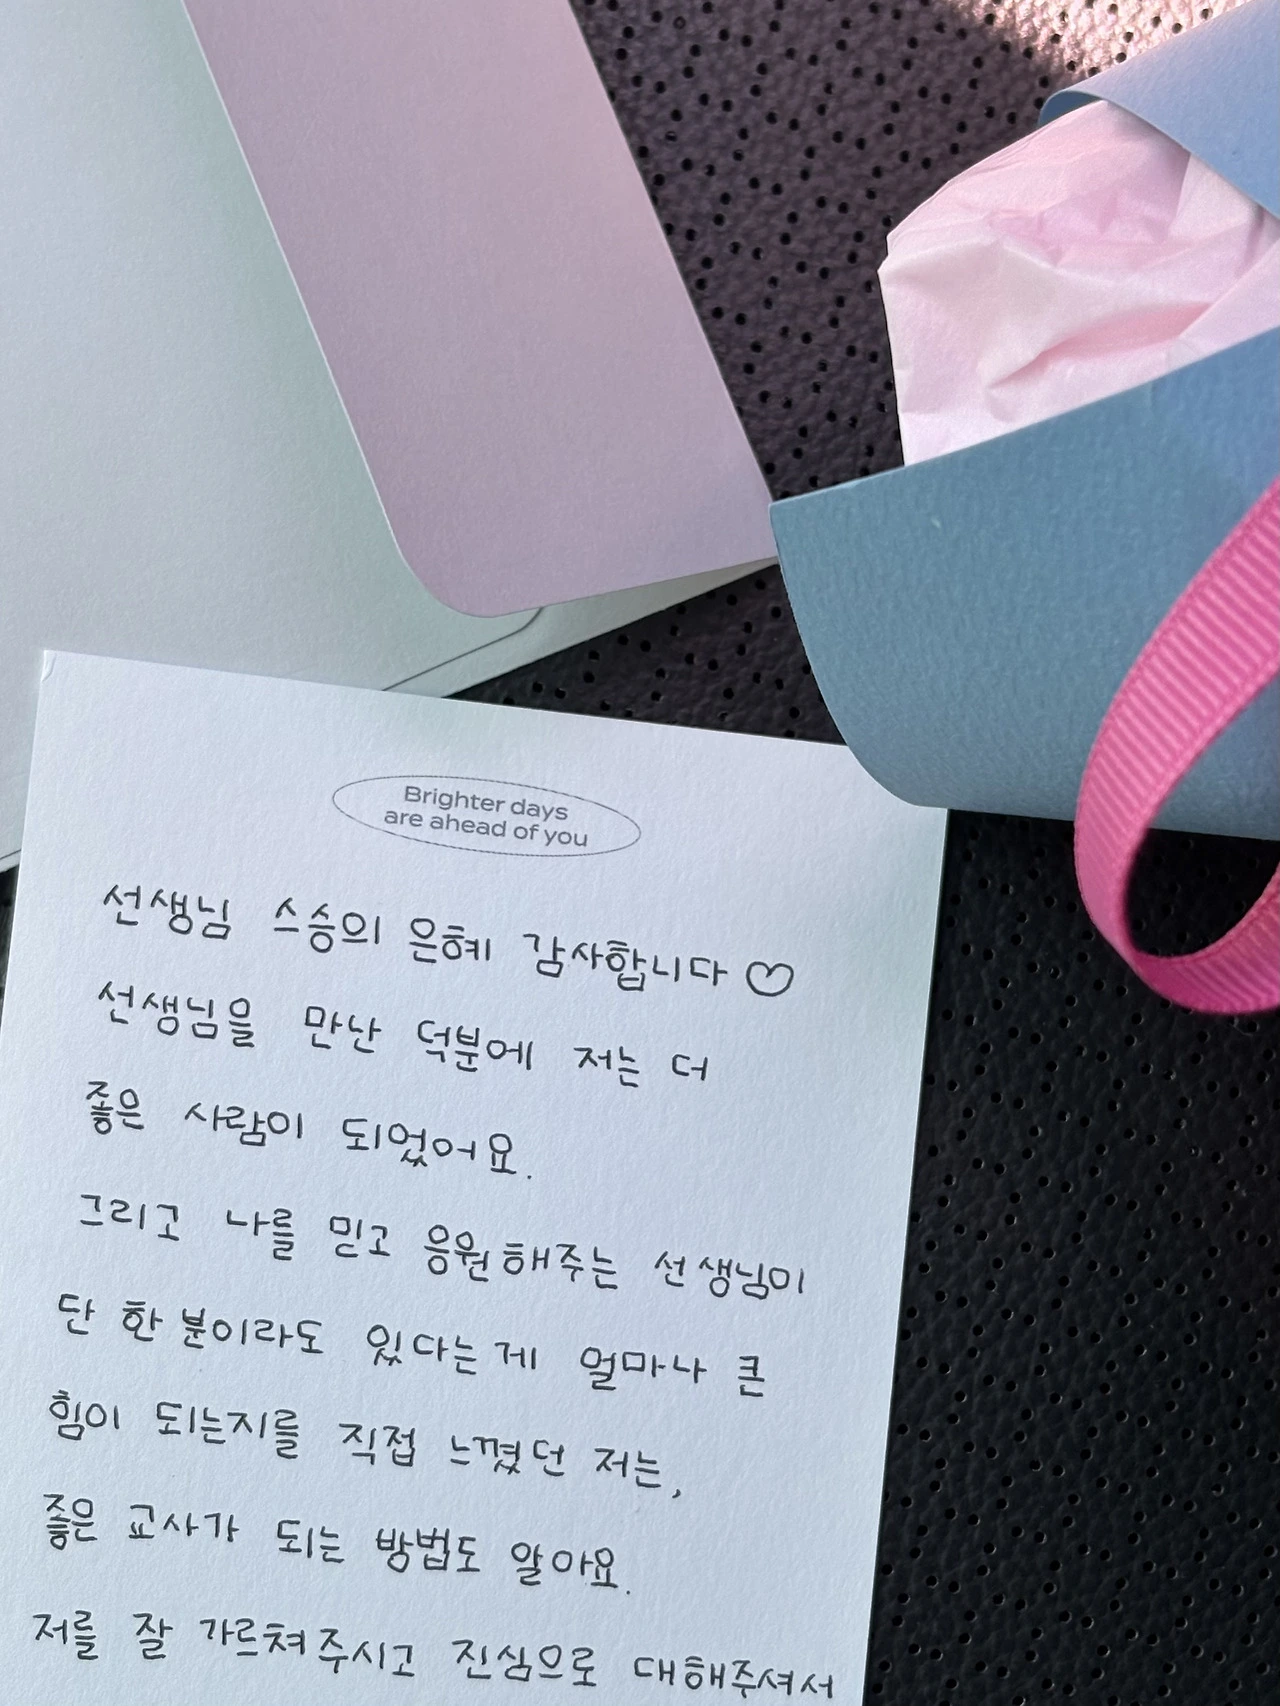 Brighter days
are ahead of you
선생님 스승의 은혜 감사합니다♡
선생님을 만난 덕분에 저는 더
좋은 사람이 되었어요.
그리고 나를 믿고 응원해주는 선생님이
단 한 분이라도 있다는게 얼마나 큰
힘이 되는지를 직접 느꼈던 저는,
좋은 교사가 되는 방법도 알아요.
저를 잘 가르쳐주시고 진심으로 대해주셔서